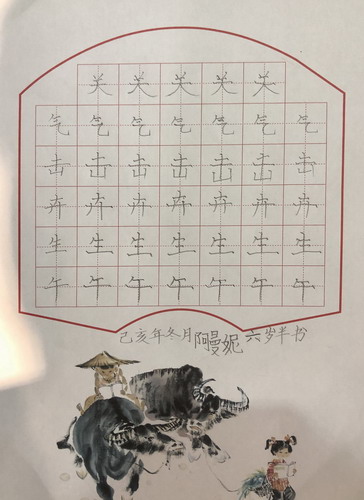 关关关关关
气气气气气气气
击击击击击击击
卉卉卉卉卉卉卉
生生生生生生生
午午午午午午午
己亥年冬月阿曼妮六岁半书